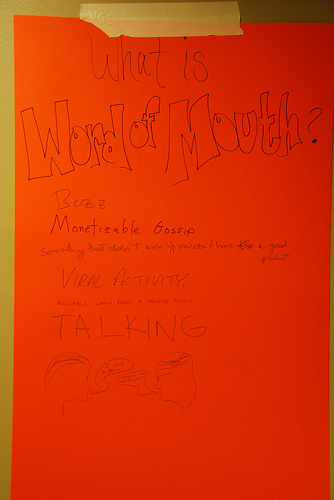 What is
Word of Mouth?
Buzz
Monetizable Gossip
Something that doesn't work if you don't have a good
product
VIRAL ACTIVITY
FROM A
TALKING